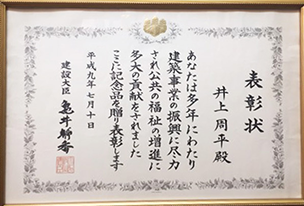 表彰状
井上周平殿
あなたは多年にわたり
建築事業の振興に尽力
され公共の福祉の増進に
多大の貢献をされました
ここに記念品を贈り表彰します
平成九年七月十日
建設大臣 亀井静香